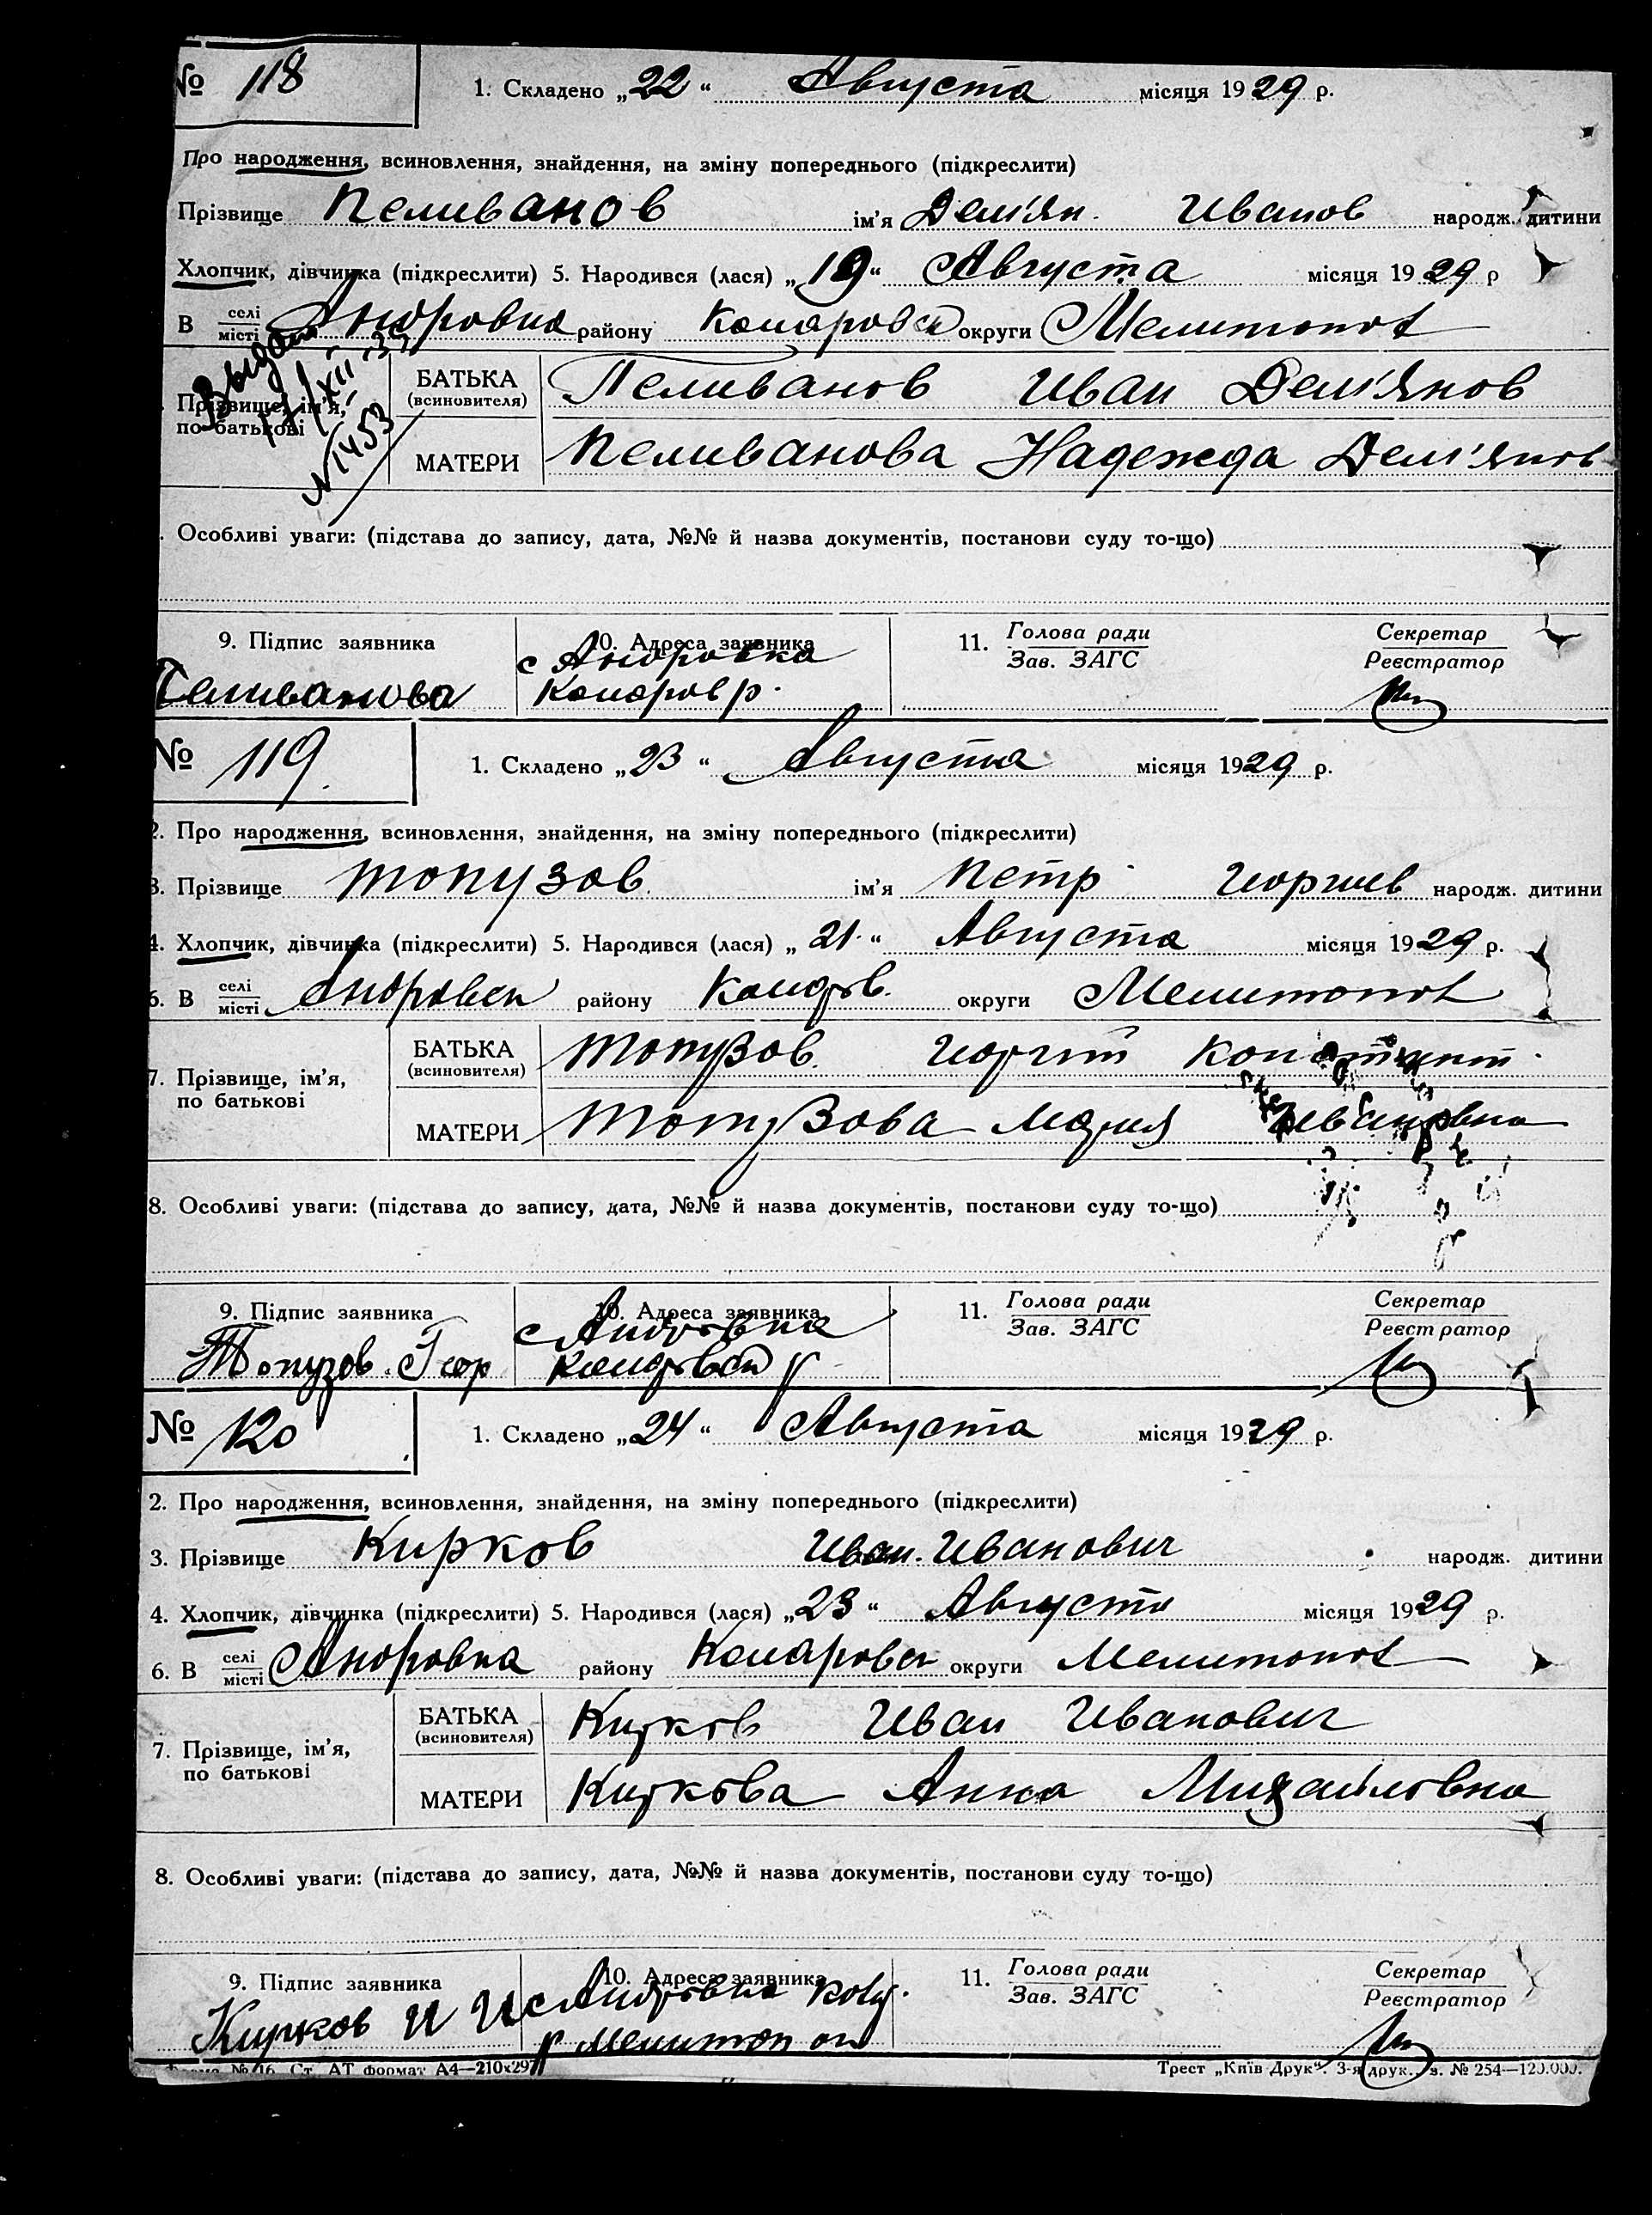 № 118
1. Складено „22“ Августа місяця 1929 р.
Про народження, всиновлення, знайдення, на зміну попереднього (підкреслити)
Прізвище Пеливанов ім'я Дем'ян Иванов народж. дитини
Хлопчик, дівчинка (підкреслити) 5. Народився (лася) „19“ Августа місяця 1929 р
В селі місті Андровка району Комаровск округи Мелитопол
Выдан
Прізвище, ім'я, по батькові
№ 1453
БАТЬКА (всиновителя) Пеливанов Иван Дем'янов
МАТЕРИ Пеливанова Надежда Дем'янов
Особливі уваги: (підстава до запису, дата, №№ й назва документів, постанови суду то-що)
9. Підпис заявника 10. Адреса заявника 11. Голова ради Секретар
Зав. ЗАГС Реєстратор
с Андровка
Пеливанова Комаров р.
№ 119
1. Складено „23“ Августа місяця 1929 р.
2. Про народження, всиновлення, знайдення, на зміну попереднього (підкреслити)
3. Прізвище Топузов ім'я Петр Георгиев народж. дитини
4. Хлопчик, дівчинка (підкреслити) 5. Народився (лася) „21“ Августа місяця 1929 р.
6. В селі місті Андровск району Комаров. округи Мелитопол
7. Прізвище, ім'я, по батькові
БАТЬКА (всиновителя) Топузов Георгий Константин
МАТЕРИ Топузова Мария
8. Особливі уваги: (підстава до запису, дата, №№ й назва документів, постанови суду то-що)
9. Підпис заявника 10. Адреса заявника 11. Голова ради Секретар
Зав. ЗАГС Реєстратор
с Андровка
Топузов Геор Комаровск р
№ 120
1. Складено „24“ Августа місяця 1929 р.
2. Про народження, всиновлення, знайдення, на зміну попереднього (підкреслити)
3. Прізвище Кирков Иван Иванович народж. дитини
4. Хлопчик, дівчинка (підкреслити) 5. Народився (лася) „23“ Августа місяця 1929 р.
6. В селі місті Андровка району Комаровск округи Мелитопол
7. Прізвище, ім'я, по батькові
БАТЬКА (всиновителя) Кирков Иван Иванович
МАТЕРИ Киркова Анна Михайловна
8. Особливі уваги: (підстава до запису, дата, №№ й назва документів, постанови суду то-що)
9. Підпис заявника 10. Адреса заявника 11. Голова ради Секретар
Зав. ЗАГС Реєстратор
Кирков И И с Андровка Ком.
р Мелитоп ок
№ 16. Ст. АТ формат А4—210x297 Трест „Київ Друк“. 3-я друк., з. № 254—120.000.